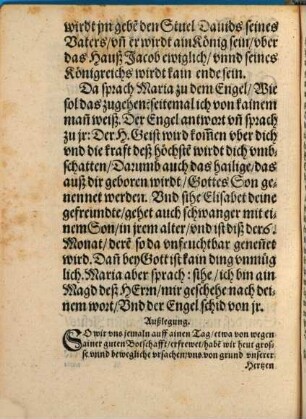 wirdt jm gebẽ den Stuel Dauids seines
Vaters/vñ er wirdt ain König sein/vber
das Hauß Jacob ewiglich/vnnd seines
Königreichs wirdt kain ende sein.
Da sprach Maria zu dem Engel/Wie
sol das zugehen: seitemal ich von kainem
mañ weiß. Der Engel antwort vñ sprach
zu jr: Der H. Geist wird kom̃en vber dich
vnd die krafft deß höchstẽ wirdt dich vmb-
schatten/Darumb auch das hailige/das
auß dir geboren wirdt/Gottes Son ge-
nennet werden. Vnd sihe Elisabet deine
gefreundte/gehet auch schwanger mit ei-
nem Son/in jrem alter/vnd ist diß der 6.
Monat/derẽ so da vnfruchtbar geneñet
wird. Dañ bey Gott ist kain ding vnmüg
lich. Maria aber sprach: sihe/ich bin ain
Magd deß HErrn/mir geschehe nach dei-
nem wort/Vnd der Engel schid von jr.
Außlegung.
SO wir vns jemaln auff ainen Tag/etwa von wegen
ainer guten Botschafft/erfrewet/habẽ wir heut gros-
se vnnd bewegliche vrsachen/vns von grund vnserer
Hertzen